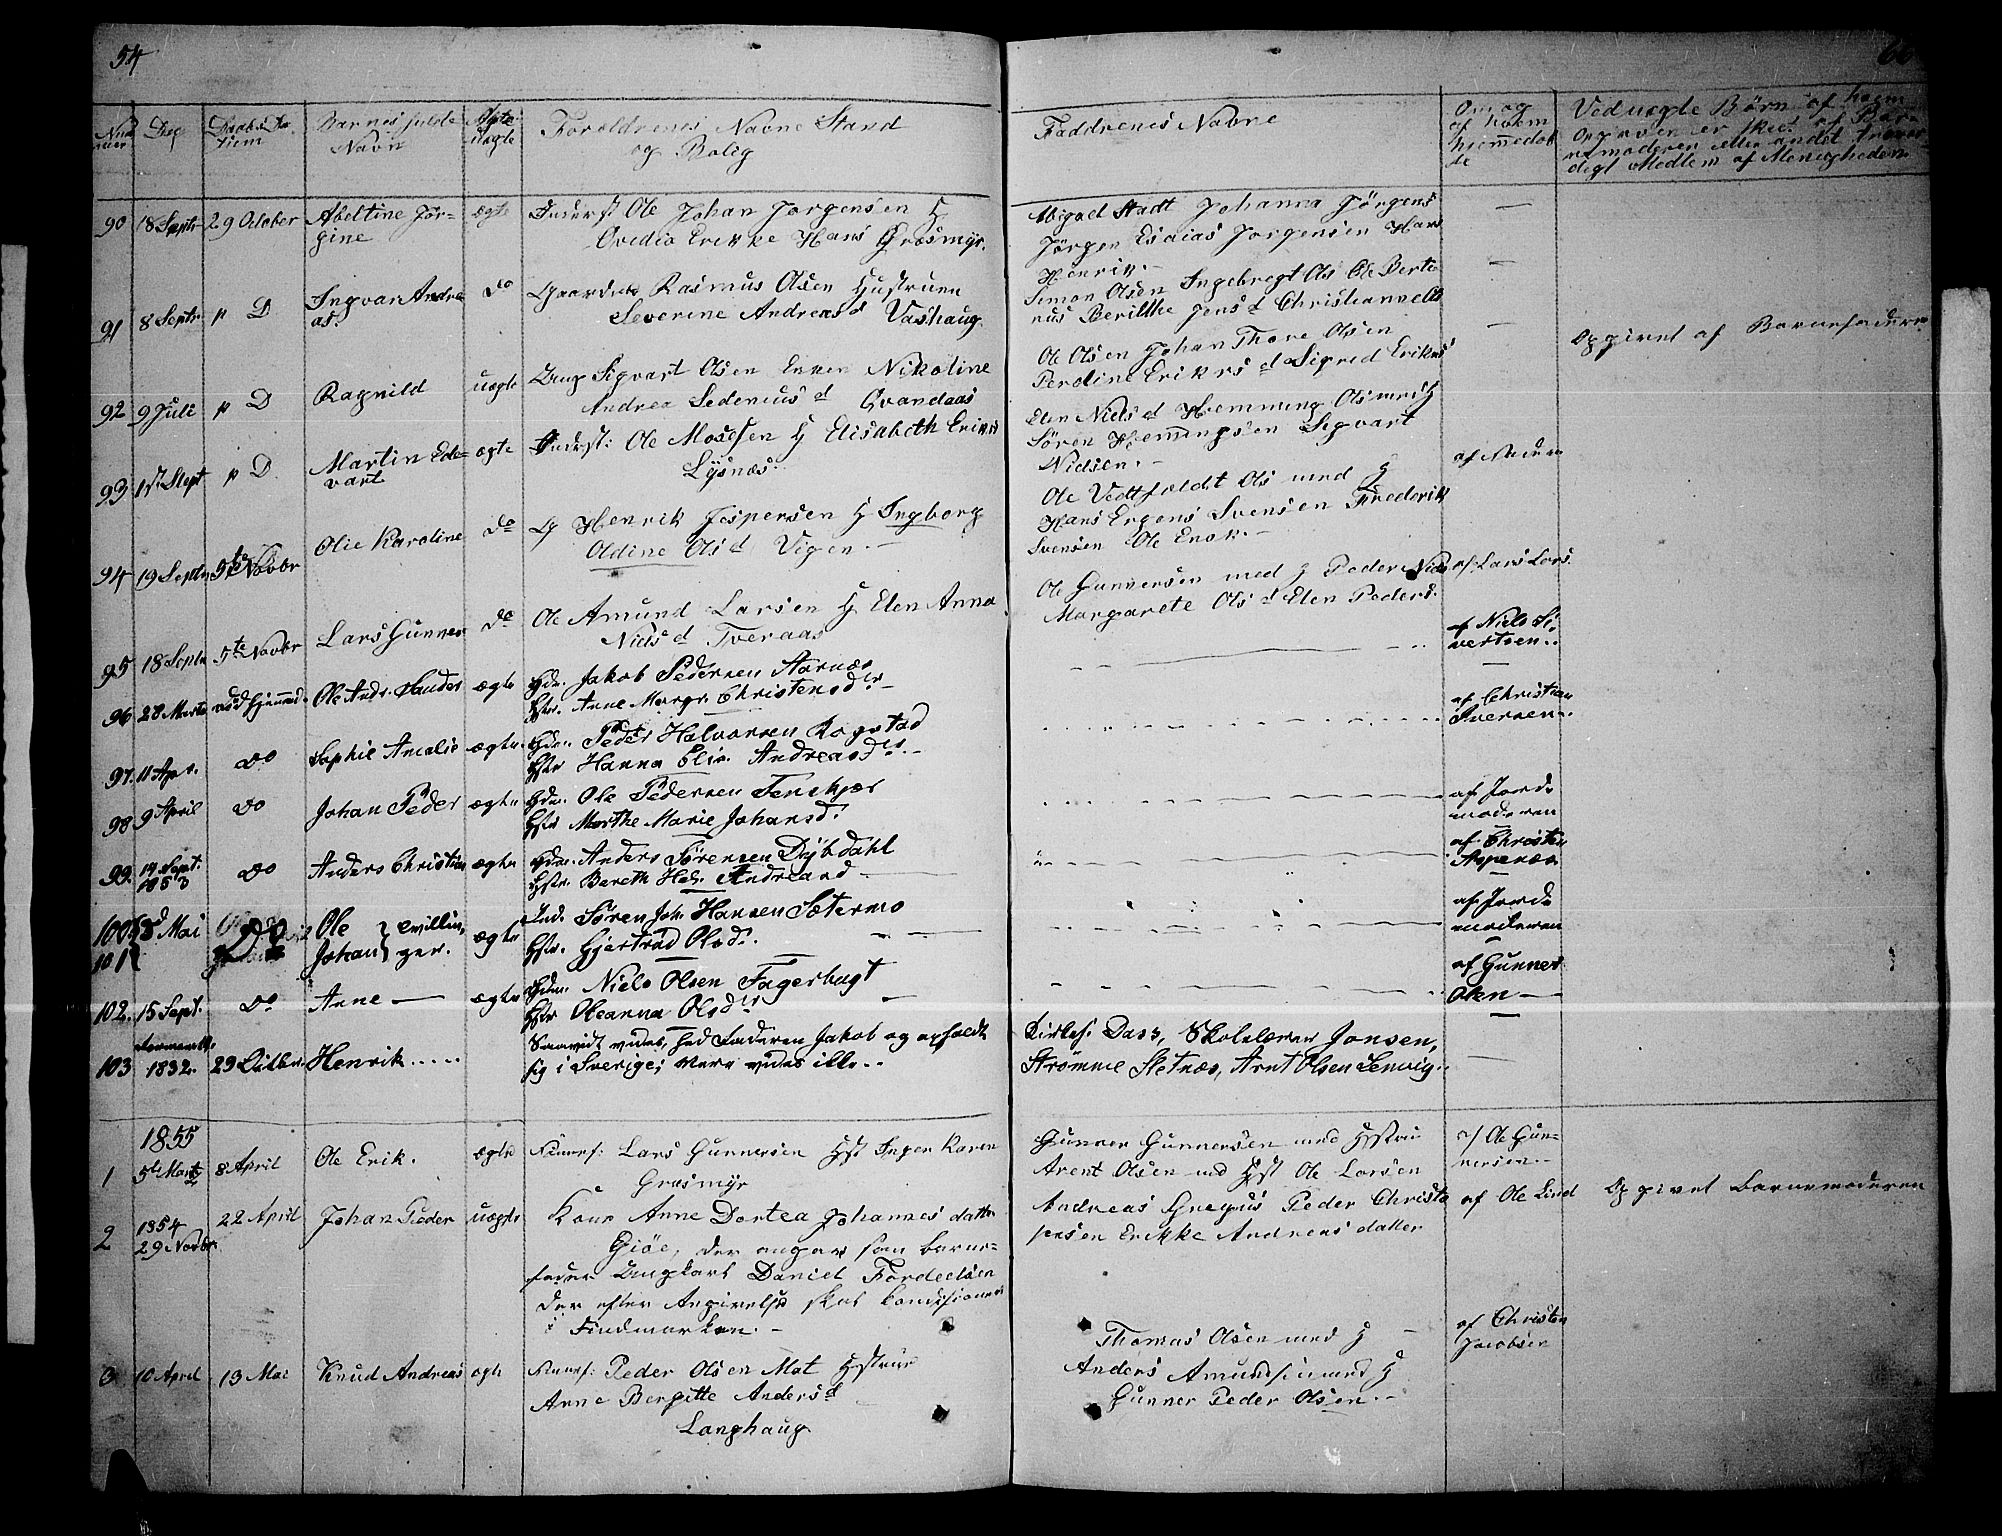 54
Num
mer
Dag
Daabs Da-
tiem
Barnes fulde
Navn
Ægte
Uægte
Foreldrenes Navne Stand
og Bolig
Faddrenes Navne
Om og
af hvem
hjemmedøb
te
Ved uægte Børn af hvem
Opgaven er skeet af Bar-
nemoderen eller andet trovær
digt Medlem af Menigheden
90 18 Septr 29 October Abeltine Jør-
gine
ægte Inderst Ole Johan Jorgensen H
Ovedia Erikke Hans Græsmyr.
Abigael Stadt Johanna Jörgens
Jörgen Esaias Jorgensen Hans
Henrik.
91 8 Septr p D Ingvar Andre
as.
do Gaardm Rasmus Olsen Hustruen
Severine Andreas d Vashaug
Simon Olsen Ingebregt Ols Ole Berte
nus Berithe Jens d
92 9 Juli p D Ragnild uægte Ung Sigvart Olsen Enken Nikoline
Andrea Sedenius d Qvandaas
Ole Olsen Johan Thore Olsen
Peroline Erikrs d Sigred Erikrs
Opgivet af Barnefaderen
93 17 Sept p D Martin Ede-
vart
ægte Inderst: Ole Mosesen H Elisabeth Eriks
Lysnæs.
Elen Niels d Hemming Ols med H
Sören Hemingsen Segvart
Nielsen.
94 19 Septr 5te Novbr Olie Karoline do G Henrik Jespersen H Ingborg
Oldine Ols d Vigen.
Ole Vedtfeldt Ols med H
Hans Ergens Svensen Frederik
Svensen Ole Enok.
95 18 Septr 5te Novbr Lars Gunner do Ole Amund Larsen H Elen Anna
Niels d Tveraas
Ole Gunnersen med H Peder Niels
Margarete Ols d Elen Peders.
af Lars Lars.
96 28 Marts død hjemmed. Ole Andr. Sander ægte Gdm. Jakob Pedersen Aarnæs
Hstr. Anne Margr. Christensdr
af Niels Si
vertsen..
97. 11 Apr. do Sophie Amalie ægte Gdm. Peder Halvorsen Rognstad
Hstr Hanna Elis. Andreasdr.
af Christian
Iversen.
98 9 April do Johan Peder ægte Gdm. Ole Pedersen Tenskjær
Hstr Marthe Marie Johansd.
af Jord
moderen
99. 14 Sept.
1853
do Anders Christian ægte Gdm. Anders Sørensen Dybdahl
Hstr. Bereth Hed. Andreasd
af Christen
Aspenæs
100
101
8 Mai Do Ole
Johan
tvillin,
ger.
ægte Ind. Søren Joh. Hansen Sætermo
Hstr. Gjertrud Olsd.
af Jord
moderen
102. 15 Sept. do Anne ægte Gdm. Niels Olsen Fagerbugt
Hstr Oleanna Olsdr
af Gunner
Olsen
103 1832. 29 Octbr. Henrik..... Saavidt vides, hed Faderen Jakob og opholdt
sig i Sverige; Mere vides ikke..
Kirkes. Dass, Skolelærer Jonsen,
Strømme Stetnæs, Arnt Olsen Lenvig.
1855
1 5te Marts 8 April Ole Erik. ægte Lars Gunnersen Hst Inger Karen
Græsmyr
Gunner Gunnersen med Hstru
Arent Olsen med Hst Ole Larsen
af Ole Gun-
nersen.
2 1854
29 Novbr. 22 April Johan Peder uægte Kone Anne Dortea Johannes datter
Giöe, der angav som barne-
fader Ungkarl Daniel Fordeelsen
der efter Angivelse skal
i Findmarken.
Andreas Peder Christo
fersen Erikke Andreas datter
af Ole Lind
Opgivet Barnemoderen
3 10 April 13 Mai Knud Andreas ægte Peder Olsen Mat Hstrue
Anne Bergitte Anders d
Langhaug
Thomas Olsen med H
Anders Amundsen med H
Gunner Peder Olsen.
af Christen
Jacobsen